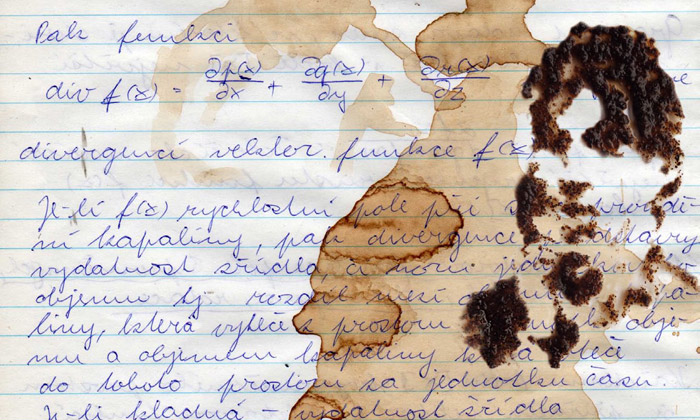 Pak funkci
div f(x) = ∂p(x)/∂x + ∂q(x)/∂y + ∂r(x)/∂z
divergencí vektor. funkce f(x)
Je-li f(x) rychlostní pole při proudě
ní kapaliny, pak divergence
vydatnost zřídla, a
objemu tj. rozdíl mezi
liny, která vyteče z prostoru obje
mu a objemem kapaliny vteče
do tohoto prostoru za jednotku času.
Je-li kladná – vydatnost zřídla